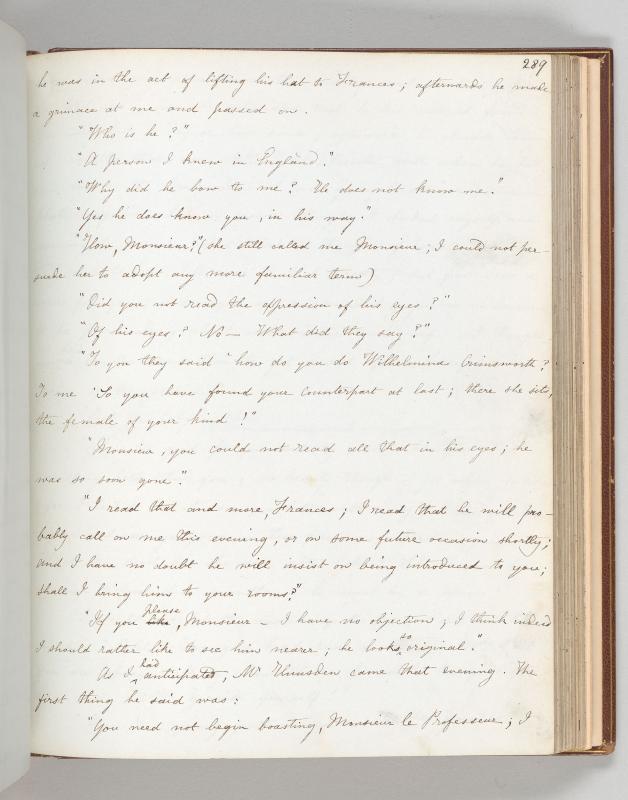 289
he was in the act of lifting his hat to Frances; afterwards he made
a grimace at me and passed on.
"Who is he?"
"A person I knew in England."
"Why did he bow to me? He does not know me."
"Yes he does know you, in his way."
"How, Monsieur?" (she still called me Monsieur; I could not per-
suade her to adopt any more familiar term)
"Did you not read the expression of his eyes?"
"Of his eyes? No— What did they say?"
"To you they said 'how do you do Wilhelmina Crimsworth?
To me 'So you have found your counterpart at last; there she sits,
the female of your kind!"
"Monsieur, you could not read all that in his eyes; he
was so soon gone."
"I read that and more, Frances; I read that he will pro-
bably call on me this evening, or on some future occasion shortly;
and I have no doubt he will insist on being introduced to you;
shall I bring him to your rooms?"
"If you like please, Monsieur — I have no objection; I think indeed
I should rather like to see him nearer; he looks so original."
As I had anticipated, Mr Hunsden came that evening. The
first thing he said was:
"You need not begin boasting, Monsieur le Professeur; I